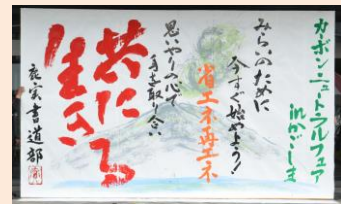 カーボンニュートラルフェア
inかごしま
みらいのために
今すぐ始めよう！
省エネ再エネ
思いやりの心で
手を取り合い
共に
生きる
鹿実書道部